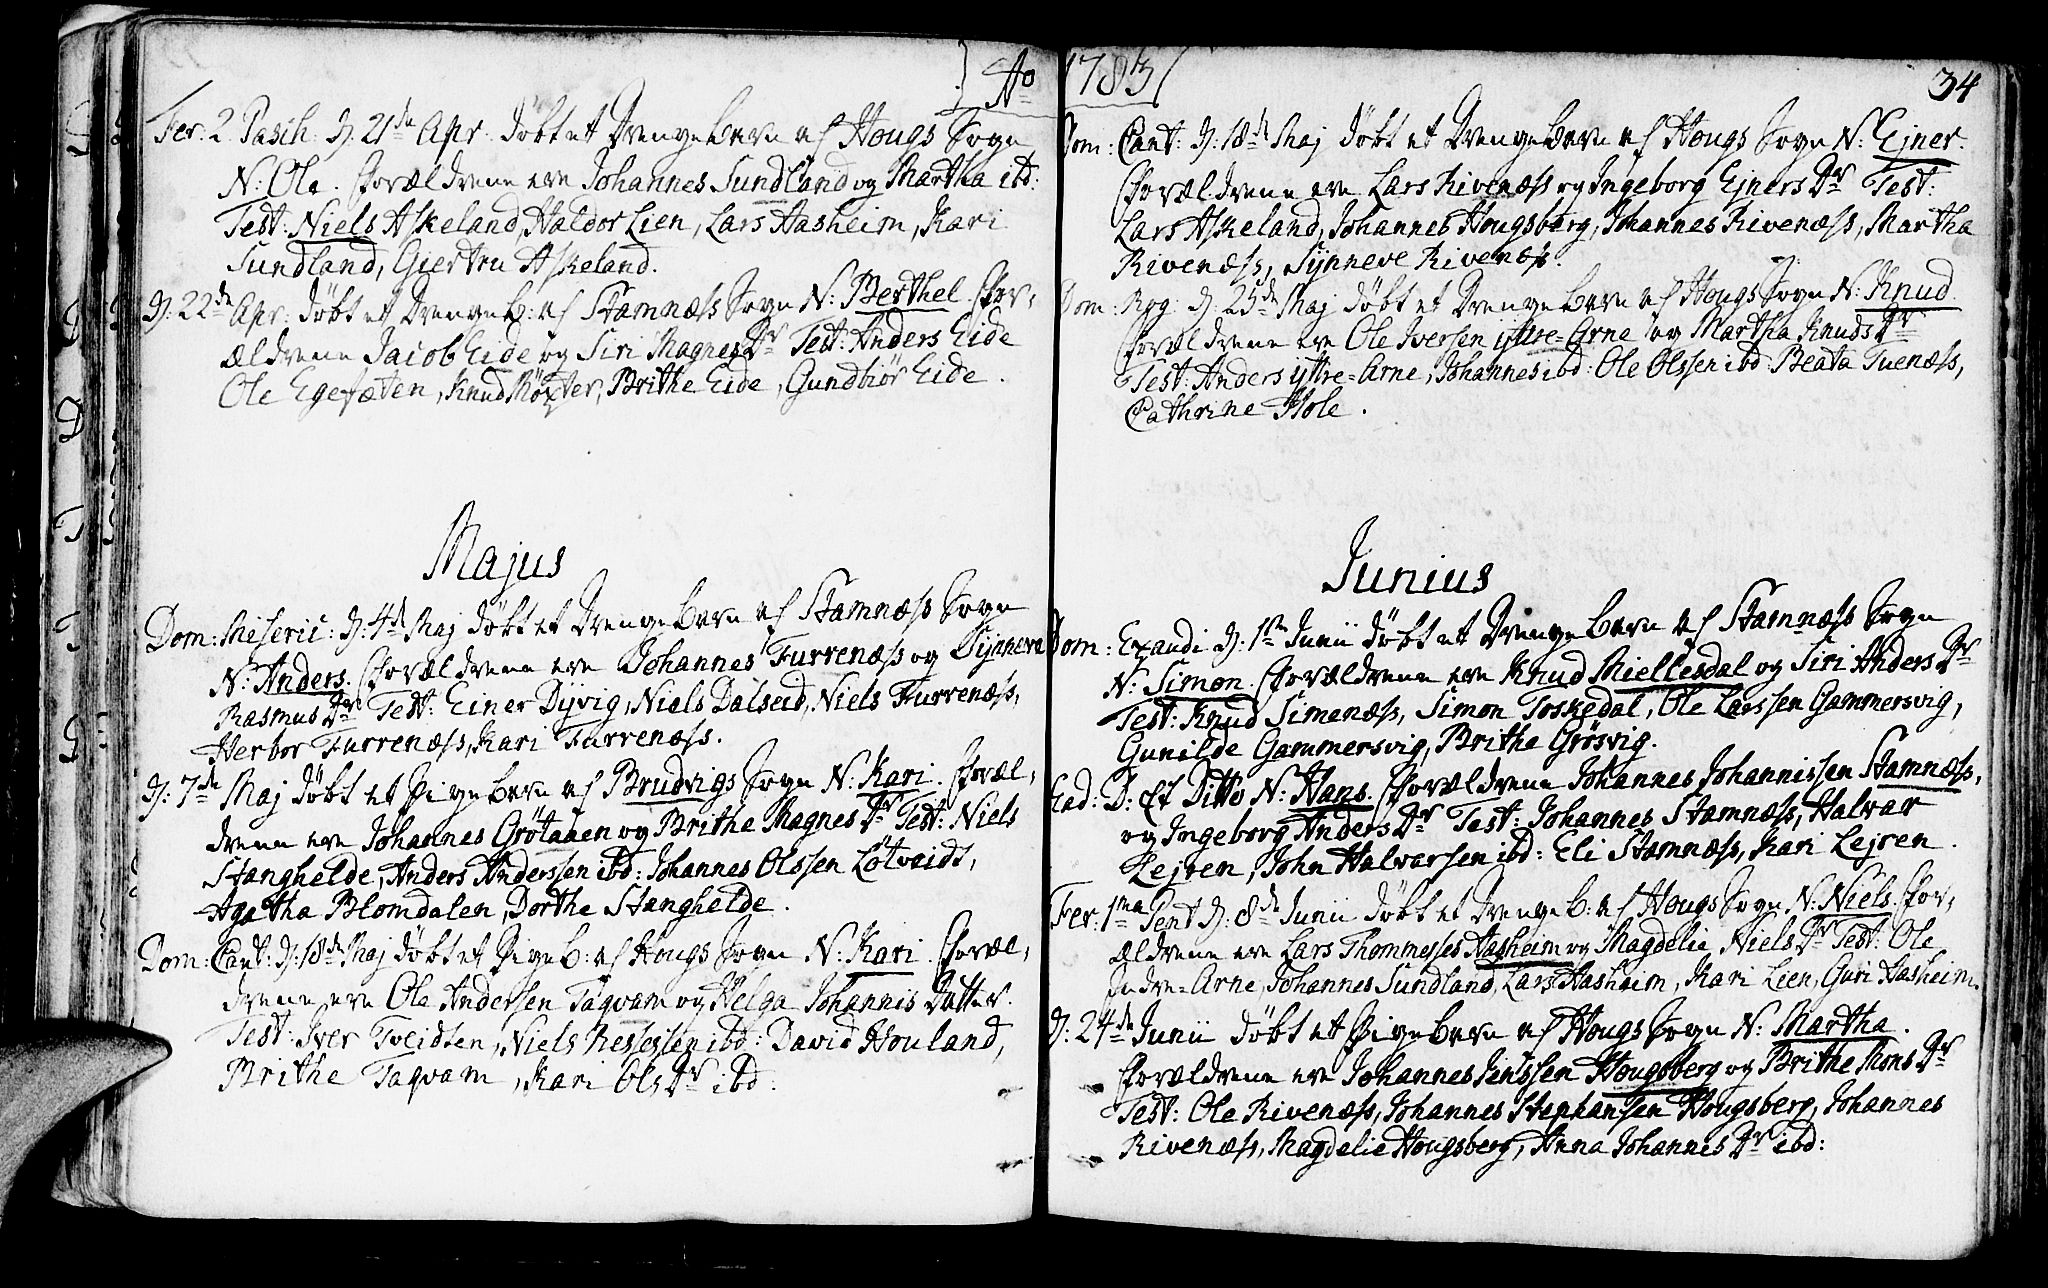 Ao
Fer: 2 Pasch: D: 21de Apr: døbt et Drengebarn af Hougs Sogn
N: Ole. Forældrene ere Johannes Sundland og Martha ibd:
Test: Niels Askeland, Haldor Lien, Lars Aasheim, Kari
Sundland, Giertru Askeland.
D: 22de Apr: døbt et Drengeb: af Stamnæss Sogn N: Berthel. For,
ældrene Jacob Eide og Siri Magnes Dr Test: Anders Eide
Ole Egesæten, Knud Møxter, Brithe Eide, Gundbiør Eide.
Majus
Dom: Miseric: D: 4de Maj døbt et Drengebarn af Stamnæss Sogn
N: Anders. Forældrene ere Johannes Furrenæss og Synneva
Rasmus Dr Test: Einer Dyvig, Niels Dalseid, Niels Furrenæss,
Herbor Furrenæss, Kari Furrenæss.
D: 7de Maj døbt et Pigebarn af Brudvigs Sogn N: Kari. Foræl,
drene ere Johannes Grøtaaen og Brithe Magnes Dr Test: Niels
Stanghelde, Anders Anderssen ibd: Johannes Olssen Løtvaidt,
Agatha Blomdalen, Dorthe Stanghelde.
Dom: Cant: D: 18de Maj døbt et Pigeb: af Hougs Sogn N: Kari. Foræl,
drene ere Ole Andersen Taqvam og Helga Johannis Datter.
Test: Iver Tveidten, Niels ibd: David Houland,
Brithe Taqvam, Kari Ols Dr ibd:
1783
34
Dom: Cant: D: 18de Maj døbt et Drengebarn af Hougs Sogn N: Ejner.
Forældrene ere Lars Rivenæss og Ingeborg Ejners Dr Test:
Lars Askeland, Johannes Hougsberg, Johannes Rivenæss, Martha
Rivenæss, Synneve Rivenæss.
Dom: Rog: D: 25de Maj døbt et Drengebarn af Hougs Sogn N: Knud.
Forældrene ere Ole Iversen yttre-Arne og Martha Knuds Dr
Test: Anders yttre-Arne, Johannes ibd: Ole Olssen ibd: Beata Tuenæss,
Cathrine Hole.
Junius
Dom: Exaudi D: 1ste Junii døbt et Drengebarn af Stamnæss Sogn
N: Simon. Forældrene ere Knud Miellesdal og Siri Anders Dr
Test: Knud Simenæss, Simon Toskedal, Ole Larssen Gammersvig,
Gunilde Gammersvig, Brithe Grøsvig.
Ead: D: Et Ditto N: Hans. Forældrene Johannes Johannissen Stamnæss,
og Ingeborg Anders Dr Test: Johannes Stamnæss, Halvar
Lejren, John Halvarsen ibd: Eli Stamnæss, Kari Lejren.
Fer: 1ma Pent D: 8de Junii døbt et Drengeb: af Hougs Sogn N: Niels. For,
ældrene ere Lars Thommesses Aasheim og Magdelie Niels Dr Test: Ole
Indre-Arne, Johannes Sundland, Lars Aasheim, Kari Lien, Guri Aasheim.
D: 24de Junii døbt et Pigebarn af Hougs Sogn N: Martha.
Forældrene ere Johannes Jenssen Hougsberg og Brithe Mons Dr
Test: Ole Rivenæss, Johannes Stephansen Hougsberg, Johannes
Rivenæss, Magdelie Hougsberg, Anna Johannes Dr ibd: